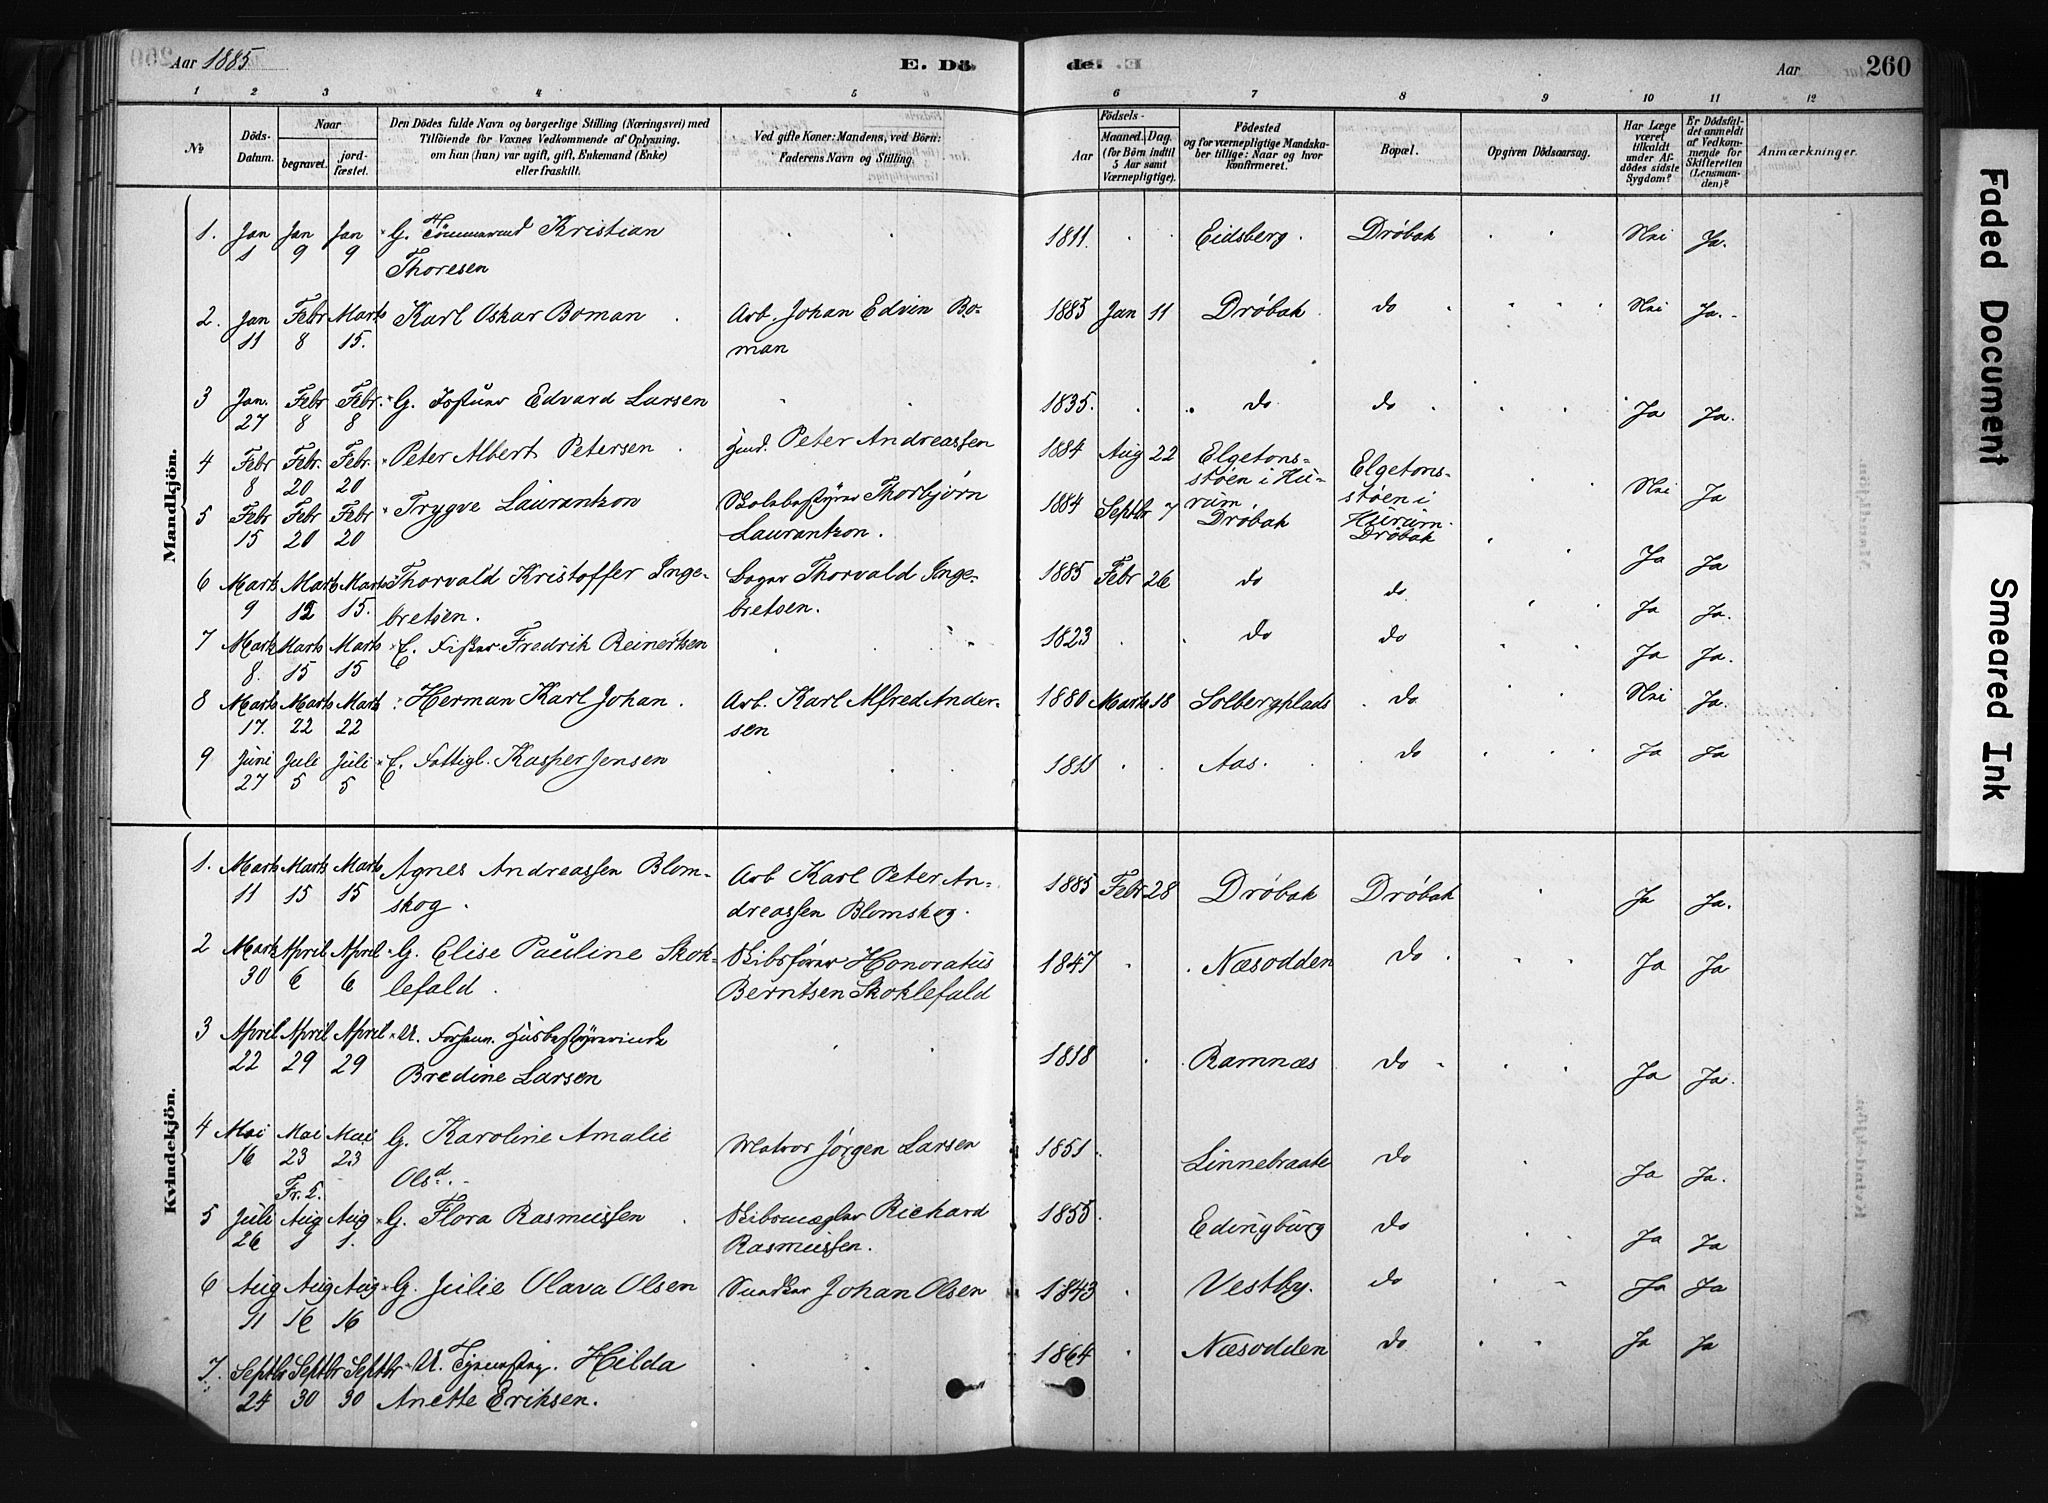 Aar 1885
E. Dö
de.
Aar
260
1 2 3 4 5 6 7 8 9 10 11 12
No
Döds-Datum.
Naar
begravet.
jordfæstet.
Den Dödes fulde Navn og borgerlige Stilling (Næringsvei) med
Tilföiende for Voxnes Vedkommende af Oplysning,
om han (hun) var ugift, gift, Enkemand (Enke)
eller fraskilt.
Ved gifte Koner: Mandens, ved Börn:
Faderens Navn og Stilling.
Födsels-
Aar
Maaned. Dag.
(for Börn indtil
5 Aar samt
Værnepligtige).
Födested
og for værnepligtige Mandskaber tillige: Naar og hvor
konfirmeret.
Bopæl.
Opgiven Dödsaarsag.
Har Læge
været
tilkaldt
under Afdödes sidste
Sygdom?
Er Dödsfaldet anmeldt
af Vedkommende for
Skifteretten
(Lensmanden)?
Anmærkninger.
Mandkjön.
1. Jan 1 Jan 9 Jan 9 G. Tømmermd Kristian
Thoresen 1811. Eidsberg. Drøbak Nei Ja.
2. Jan 11 Febr 8 Marts 15. Karl Oskar Boman Arb. Johan Edvin Bo-
man 1885 Jan 11 Drøbak do Nei Ja.
3 Jan. 27 Febr 8 Febr. 8 G. Edvard Larsen 1835. do do Ja Ja.
4 Febr 8 Febr. 20 Febr. 20 Peter Albert Petersen Peter Andreassen 1884 Aug 22 Elgetons-
støen i Hu-
rum Elgetons-
støen i
Hurum. Nei Ja
5 Febr 15 Febr 20 Febr 20 Trygve Laurantzon Skolebestyrer Thorbjørn
Laurantzon. 1884 Septbr 7 Drøbak Drøbak Ja Ja
6 Marts 9 Marts 12 Marts 15. Thorvald Kristoffer Inge-
bretsen. Bager Thorvald Inge-
bretsen. 1885 Febr 26 do do Ja Ja.
7 Marts 8. Marts 15 Marts 15 E. Fisker Fredrik Reinertsen 1823 do do Ja Ja.
8 Marts 17. Marts 22 Marts 22 Herman Karl Johan. Arb. Karl Alfred Ander-
sen 1880 Marts 18 Solbergplads do Nei Ja.
9 Juni 27 Juli 5 Juli 5 E. Fattigl. Kasper Jensen 1811 Aas. do Ja Ja
Kvindekjön.
1. Marts 11 Marts 15 Marts 15 Agnes Andreassen Blom-
skog. Arb Karl Peter An-
dreassen Blomskog. 1885 Febr 28 Drøbak Drøbak Ja Ja.
2 Marts 30 April 6 April 6 G. Elise Pauline Skok-
lefald. Skibsfører Honoratus
Berntsen Skoklefald 1847 Næsodden do Ja Ja
3 April 22 April 29 April 29 U. Husbestyrerinde
Bredine Larsen 1818 Ramnæs do Ja Ja.
4 Mai 16 Mai 23 Mai 23 G. Karoline Amalie
Olsd. Matros Jørgen Larsen 1851 Linnebraate do Ja Ja.
5 Juli 26 Aug 1 Aug 1. G. Flora Rasmussen Skibsmægler Richard
Rasmussen. 1855 Edingburg do Ja Ja
6 Aug 11 Aug 16 Aug 16 G. Julie Olava Olsen Johan Olsen 1843 Vestby. do Ja Ja
7. Septbr 24 Septbr 30 Septbr 30 U. Hilda
Anette Eriksen. 1864 Næsodden do Ja Ja
Faded Document
Smeared Ink